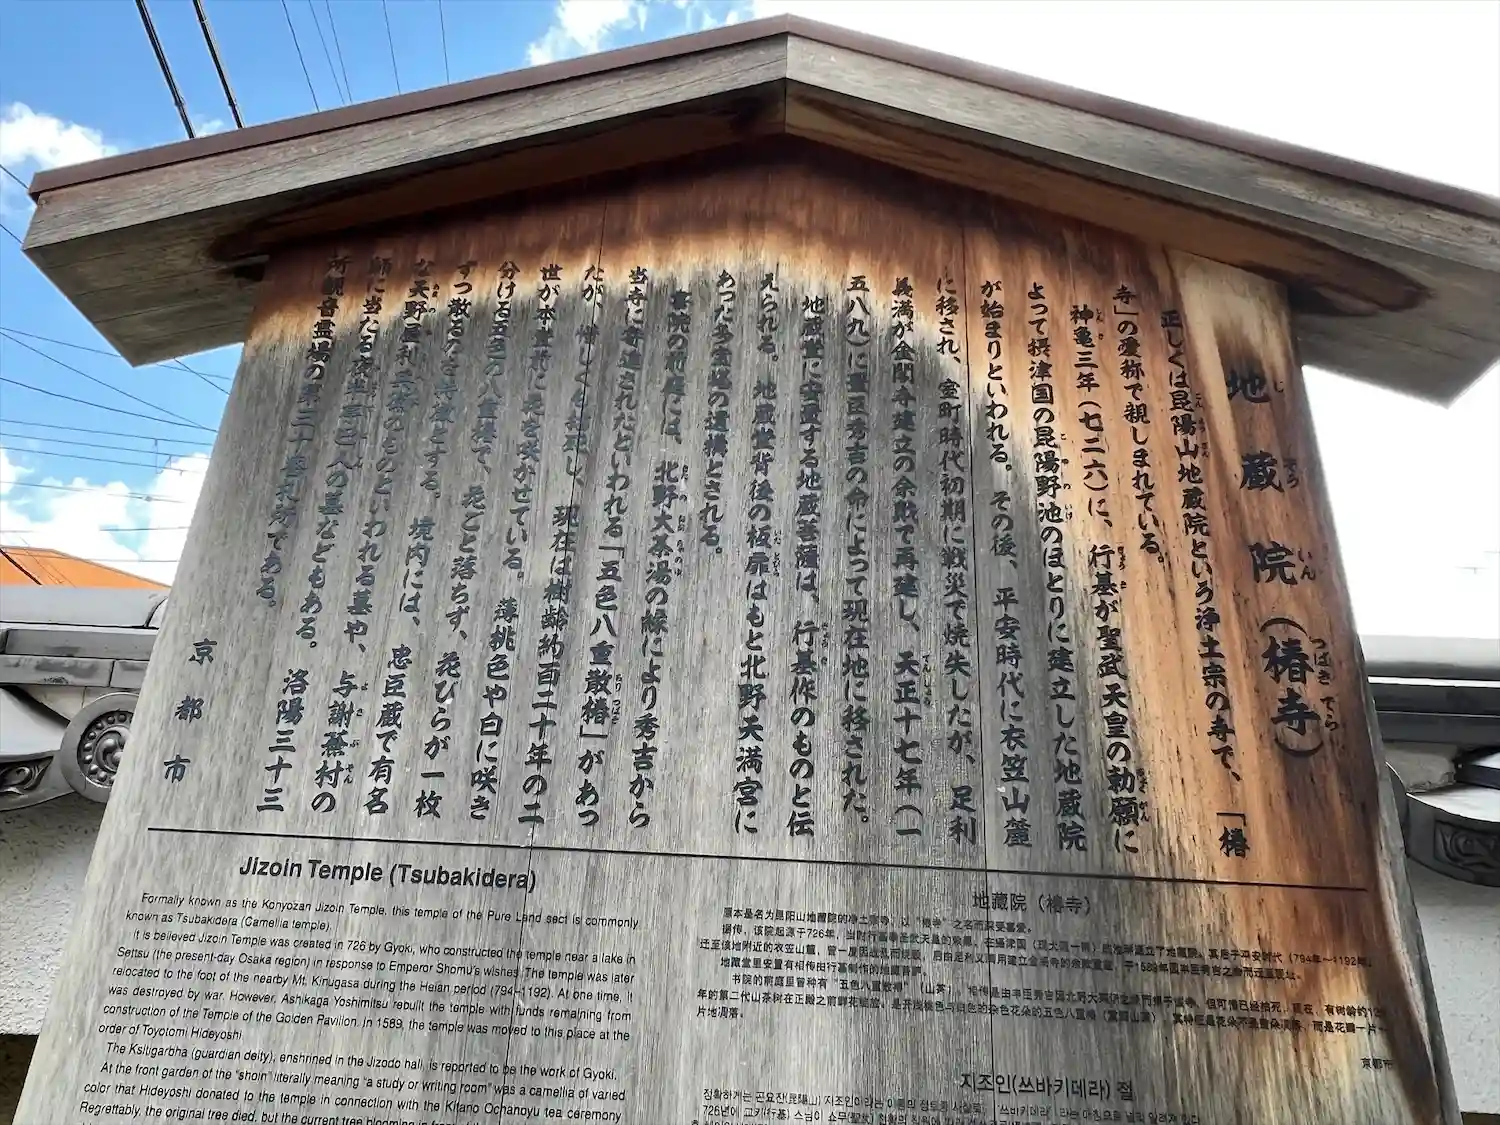 地蔵院（椿寺）
じ ぞう いん つばき でら
正しくは昆陽山地蔵院という浄土宗の寺で、「椿
寺」の愛称で親しまれている。
神亀三年（七二六）に、行基が聖武天皇の勅願に
よって摂津国の昆陽野池のほとりに建立した地蔵院
が始まりといわれる。その後、平安時代に衣笠山麓
に移され、室町時代初期に戦災で焼失したが、足利
義満が金閣寺建立の余財で再建し、天正十七年（一
五八九）に豊臣秀吉の命によって現在地に移された。
地蔵堂に安置する地蔵菩薩は、行基作のものと伝
えられる。地蔵堂背後の板扉はもと北野天満宮に
あった多宝塔の遺構とされる。
書院の前庭には、北野大茶湯の縁により秀吉から
当寺に寄進されたといわれる「五色八重散椿」があっ
たが、惜しくも枯死し、現在は樹齢約百二十年の二
世が本堂前に花を咲かせている。薄桃色や白に咲き
分ける五色の八重椿で、花ごと落ちず、花びらが一枚
ずつ散るのを特徴とする。境内には、忠臣蔵で有名
な天野屋利兵衛のものといわれる墓や、与謝蕪村の
師に当たる夜半亭巴人の墓などもある。洛陽三十三
所観音霊場の第三十番札所である。
京都市
Jizoin Temple (Tsubakidera)
Formally known as the Konyozan Jizoin Temple, this temple of the Pure Land sect is commonly
known as Tsubakidera (Camellia temple).
It is believed Jizoin Temple was created in 726 by Gyoki, who constructed the temple near a lake in
Settsu (the present-day Osaka region) in response to Emperor Shomu's wishes. The temple was later
relocated to the foot of the nearby Mt. Kinugasa during the Heian period (794-1192). At one time, it
was destroyed by war. However, Ashikaga Yoshimitsu rebuilt the temple with funds remaining from
construction of the Temple of the Golden Pavilion. In 1589, the temple was moved to this place at the
order of Toyotomi Hideyoshi.
The Ksitigarbha (guardian deity), enshrined in the Jizodo hall, is reported to be the work of Gyoki.
At the front garden of the "shoin" literally meaning "a study or writing room" was a camellia of varied
color that Hideyoshi donated to the temple in connection with the Kitano Ochanoyu tea ceremony
Regrettably, the original tree died, but the current tree blooming in front of the
地藏院（椿寺）
原本是名为昆阳山地藏院的净土宗寺，以"椿寺"之名而深受喜爱。
地藏堂里安置有相传由行基制作的地藏菩萨。
片地凋落。
京都市
지조인(쓰바키데라) 절